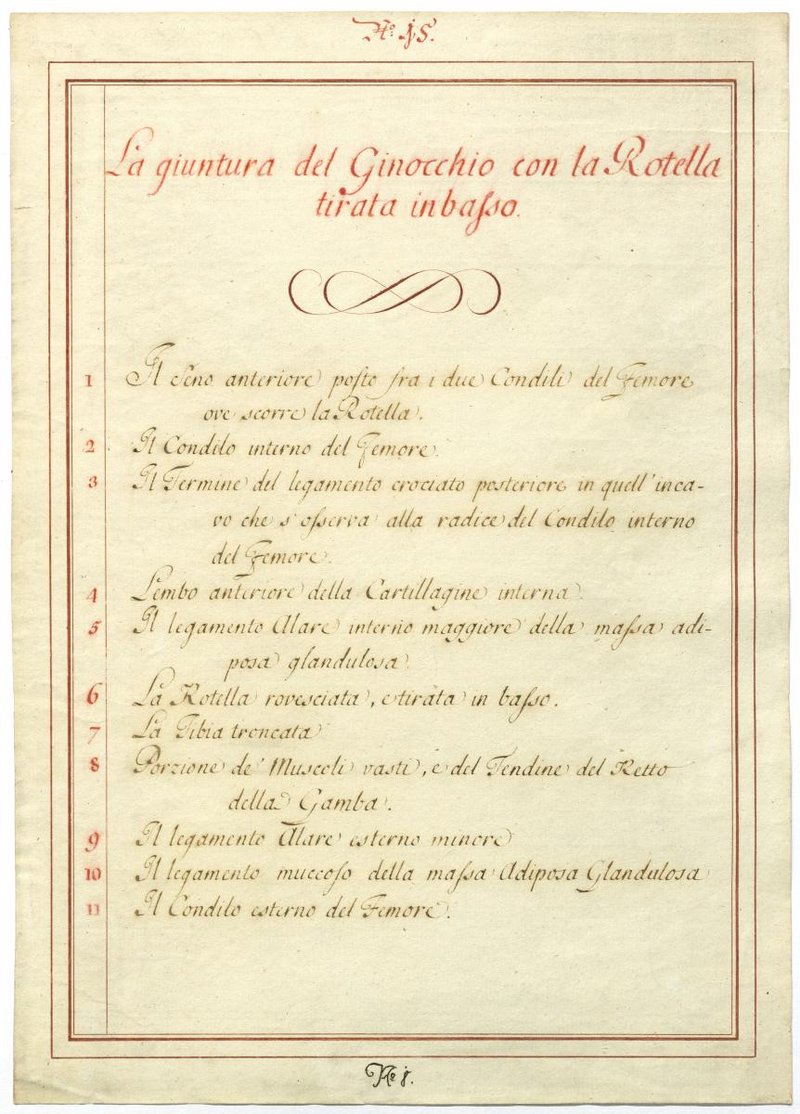 No. 15.
La giuntura del Ginocchio con la Rotella
tirata in basso.
1 Il Seno anteriore posto fra i due Condili del Femore
ove scorre la Rotella.
2 Il Condilo interno del Femore.
3 Il Termine del legamento crociato posteriore in quell'inca-
vo che s'osserva alla radice del Condilo interno
del Femore.
4 Lembo anteriore della Cartillagine interna.
5 Il legamento Alare interno maggiore della massa adi-
posa glandulosa.
6 La Rotella rovesciata, e tirata in basso.
7 La Tibia troncata
8 Porzione de' Muscoli vasti, e del Tendine del Retto
della Gamba.
9 Il legamento Alare esterno minore
10 Il legamento muccoso della massa Adiposa Glandulosa
11 Il Condilo esterno del Femore.